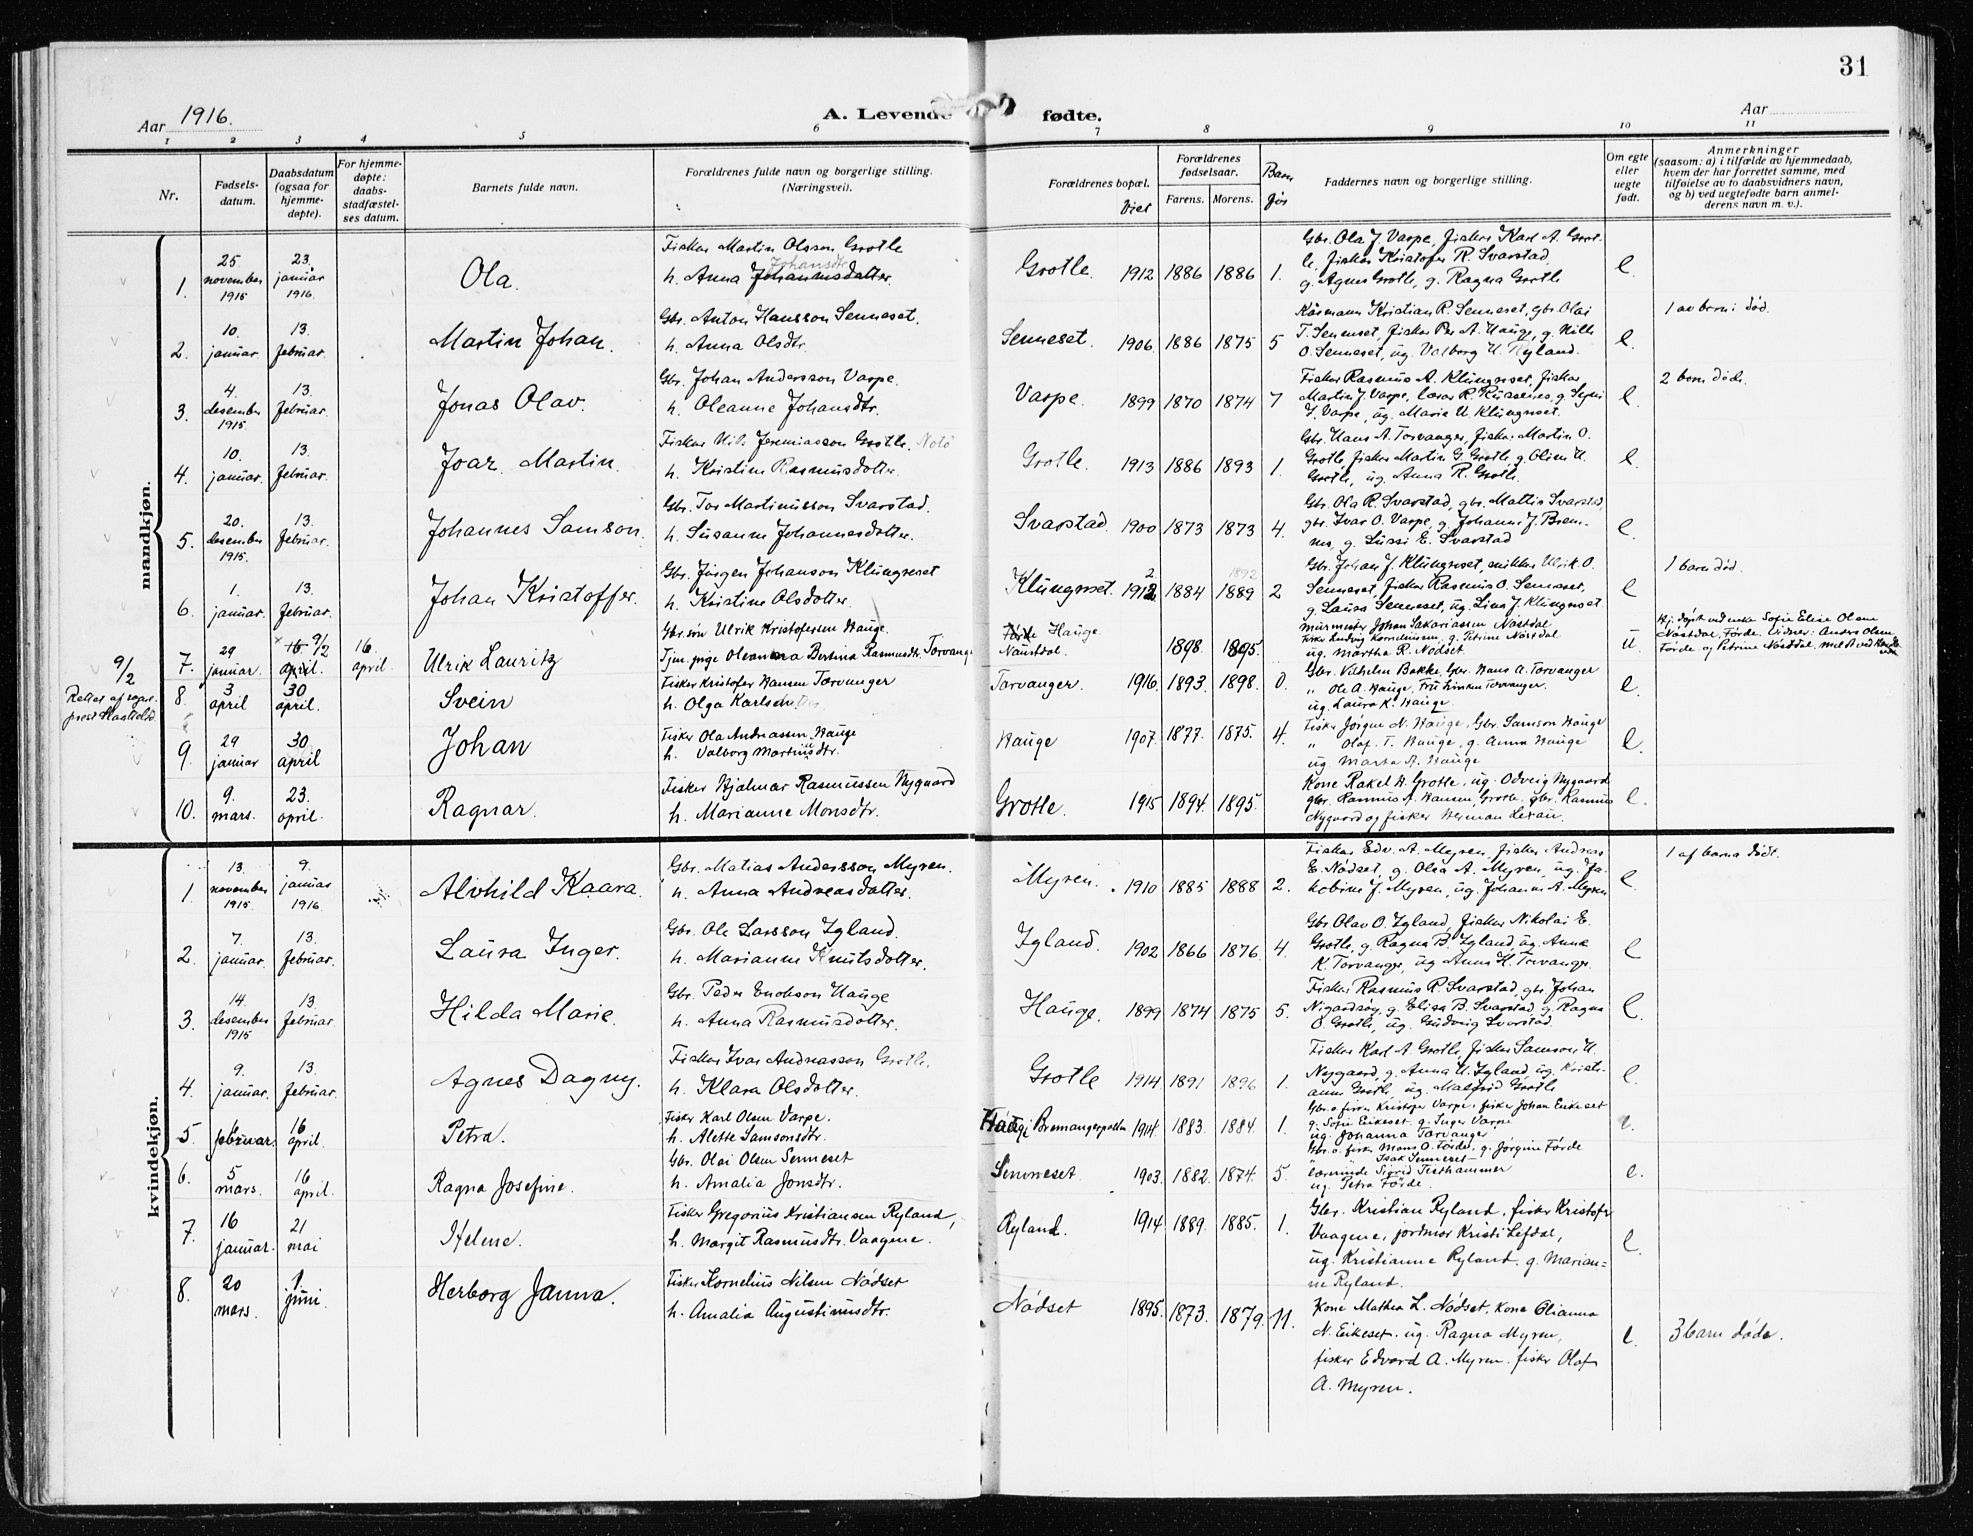 31
Aar 1916.
A. Levende fødte.
Aar
1 2 3 4 5 6 7 8 9 10 11
Nr.
Fødsels-
datum.
Daabsdatum
(ogsaa for
hjemme-
døpte).
For hjemme-
døpte:
daabs-
stadfæstel-
ses datum.
Barnets fulde navn.
Forældrenes fulde navn og borgerlige stilling.
(Næringsvei).
Forældrenes bopæl.
Viet
Forældrenes
fødselsaar.
Farens. Morens.
Barn
Faddernes navn og borgerlige stilling.
Om egte
eller
uegte
født.
Anmerkninger
(saasom: a) i tilfælde av hjemmedaab,
hvem der har forrettet samme, med
tilføielse av to daabsvidners navn,
og b) ved uegtefødte barn anmel-
derens navn m. v.).
mandkjøn.
1. 25 november 1915 23. januar 1916. Ola.
Fisker Martin Olsson Grotle
Johansdtr
h. Anna Johannesdatter.
Grotle. 1912 1886 1886 1.
Gbr. Ola J. Varpe, fisker Karl A. Grot-
le, fisker Kristofer R. Svarstad,
g. Agnes Grotle, g. Ragna Grotle
e.
2. 10. januar. 13. februar. Martin Johan.
Gbr. Anton Hansson Senneset.
h. Anna Olsdtr.
Senneset. 1906 1886 1875 5
Kristian R. Senneset, gbr Olai
T. Senneset, fisker Per A. Hauge, g.
O. Senneset, ug. Valborg H. Ryland.
e.
1 av barna død.
3. 4. desember 1915 13. februar. Jonas Olav.
Gbr. Johan Andersson Varpe.
h. Oleanne Johansdtr.
Varpe. 1899 1870 1874 7
Fisker Rasmus A. Klungreset, fisker
Martin J. Varpe, lærer R.
J. Varpe, ug. Marie U. Klungreset.
e.
2 barn døde.
4. 10. januar. 13. februar. Joar Martin.
Fisker Nils Jeremiasson Grotle.
h. Kristine Rasmusdotter.
Grotle. 1913 1886 1893 1.
Gbr. Hans A. Torvanger, fisker Martin O.
Grotle, fisker Martin G. Grotle, g. Oline
Grotle, ug. Anna R. Grotle.
e.
5. 20. desember 1915. 13. februar. Johannes Samson.
Gbr. Tor Martinusson Svarstad.
h. Susanne Johannesdotter.
Svarstad. 1900 1873 1873 4.
Gbr. Ola R. Svarstad, gbr. Mattis Svarstad,
gbr. Ivar O. Varpe, g. Johanne J. Brem-
nes, g. Lussi E. Svarstad
e.
6. 1. januar. 13. februar. Johan Kristoffer.
Gbr. Jørgen Johanson Klungreset
h. Kristine Olsdotter.
Klungreset. 1912 1884 1889 1892 2
Gbr. Johan J. Klungreset, snikker Ulrik O.
Senneset, fisker Rasmus O. Senneset,
g. Laura Senneset, ug. Lina J. Klungreset
e
1 barn død.
9/2
Rettet af
7. 29 januar. 16 april. 9/2 16. april. Ulrik Lauritz
Gbr. søn Ulrik Kristofersen Hauge.
Tjen. pige Oleanna Bertina Rasmusdtr. Torvanger
Førde Hauge
Naustdal. 1898. 1895.
Murmester Johan Sakariassen Nøstdal
fisker Ludvig Korneliusen, g. Petrine Nøstdal
ug. Martha R. Nødset
u.
Hj. døpt ved enke Sofie Elise Olsen
Nøstdal, Førde. Vidner: Anders Olsen
Førde og Petrine Nøstdal.
8. 3 april 30 april. Svein
Fisker Kristofer Hansen Torvanger
h. Olga Karlsdatter
Torvanger. 1916. 1893. 1898. 0.
Gbr. Vilhelm Bakke, Gbr. Hans A. Torvanger
" Ole A. Hauge, Fru Linken Torvanger.
ug. Laura K. Hauge.
e.
9. 29 januar 30. april Johan
Fisker Ola Andreassen Hauge
h. Valborg Martinusdtr.
Hauge 1907. 1877. 1875. 4.
Fisker Jørgen N. Hauge, Gbr. Samson Hauge
" Olaf T. Hauge, g. Anna Hauge
ug. Marta A. Hauge
e.
10. 9. mars. 23. april. Ragnar.
Fisker Hjalmar Rasmussen Nygaard
h. Marianne Monsdtr.
Grotle. 1915 1894. 1895.
Kone Rakel H. Grotle, ug. Odveig Nygaard
gbr. Rasmus A. Hansen, Grotle, gbr. Rasmus
Nygaard og fisker Herman Lexau.
e.
kvindekjøn.
1. 13. november 1915. 9. januar 1916 Alvhild Kaara.
Gbr. Matias Andersson Myren.
h. Anna Andreasdatter.
Myren. 1910 1885 1888 2.
Fisker Edv. A. Myren, fisker Andreas
E. Nødset, g. Olea A. Myren, ug. Ja-
kobine J. Myren, ug. Johanne A. Myren
e
1 af barna dødt.
2. 7. januar. 13. februar. Laura Inger.
Gbr. Ole Larsson Igland.
h. Marianne Knutsdotter.
Igland. 1902 1866 1876. 4
Gbr Olav O. Igland, fisker Nikolai E.
Grotle, g. Ragna B. Igland, ug. Anna
K. Torvanger, ug Anna H. Torvanger.
e
3. 14. desember 1915 13. februar. Hilda Marie.
Gbr. Peder Enokson Hauge
h. Anna Rasmusdotter.
Hauge. 1899 1874 1875 5.
Fisker Rasmus R. Svarstad, gbr Johan
Nigardsøy, g. Elisa B. Svarstad, g. Ragna
O. Grotle, ug. Gudveig Svarstad.
e.
4 9. januar. 13. februar. Agnes Dagny.
Fisker Ivar Andreasson Grotle.
h. Klara Olsdotter.
Grotle 1914 1891 1896 1.
Fisker Karl A Grotle, fisker Samson H.
Nygaard, g. Anna H. Igland, ug. Kristi-
anne Grotle, ug. Malfrid Grotle
e.
5. februar. 16 april. Petra.
Fisker Karl Olsen Varpe.
h. Alette Samsonsdtr.
Bremangerpollen 1914. 1883. 1884. 1.
Gbr. o. fisker Kristofer Varpe. fisker Johan Eikeset
g. Sofie Eikeset, g. Inger Varpe
ug. Johanna Torvanger
e.
6. 5 mars. 16 april. Ragna Josefine.
Gbr. Olai Olsen Senneset
h. Amalia Jonsdtr.
Senneset 1903. 1882. 1874. 5
Gbr. o. fisker Mons O. Førde, g. Jørgine Førde
" Isak Senneset
lærerinde Sigrid Tisthammer
ug. Petra Førde.
e.
7. 16 januar. 21 mai Helene.
Fisker Gregorius Kristiansen Ryland,
h. Margit Rasmusdtr. Vaagene.
Ryland. 1914. 1889. 1885. 1.
Gbr. Kristian Ryland, fisker Kristofer
Vaagene, jordmor Kristi Lefdal,
ug. Kristianne Ryland. g. Marian-
ne Ryland.
e.
8. 20 mars. 1. juni. Herborg Janna.
Fisker Kornelius Nilsen Nødset
h. Amalia Augustinusdtr.
Nødset 1895. 1873. 1879. 11.
Kone Mathea L. Nødset. Kone Olianna
N. Eikeset. ug. Ragna Myren,
fisker Edvard A. Myren. fisker Olaf
A. Myren.
e.
3 barn døde.